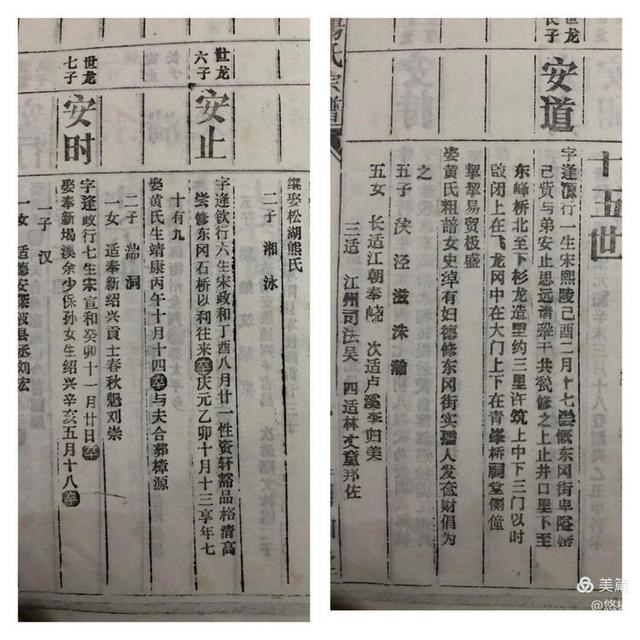 十五世
安道
字逢源行一生宋熙陵己酉二月十七尝慨东冈街卑隘
己赀与弟安止思远清 干共甃修之上止井口里下至
东峰桥北至下杉龙造里约三里许筑上中下三门以时
啟闭上在飞龙冈中在大门上下在青 桥祠堂侧僮
挈挈易贸极盛
娶黄氏粗谙女史绰有妇德修东冈街实孺人发奁财倡为
之
五子 浃 泾 滋 洙 瀚
五女 长适江朝奉峣 次适卢溪李归美
三适 江州司法吴 四适林丈童邦佐
氏宗谱
继娶松湖熊氏
二子 湘 泳
世龙六子
安止
字逢钦行六生宋政和丁酉八月廿一性资轩豁品格清高
尝修东冈石桥以利往来卒庆元乙卯十月十三享年七
十有九
娶黄氏生靖康丙午十月十四卒与夫合葬樟源
二子 湍 洞
一女 适奉新绍兴贡士春秋魁刘崇
世龙七子
安时
字逢政行七生宋宣和癸卯十一月廿日卒
娶奉新埸溪余少保孙女生绍兴辛亥五月十八卒
一子 汉
一女 适德安 县丞刘宏
美篇